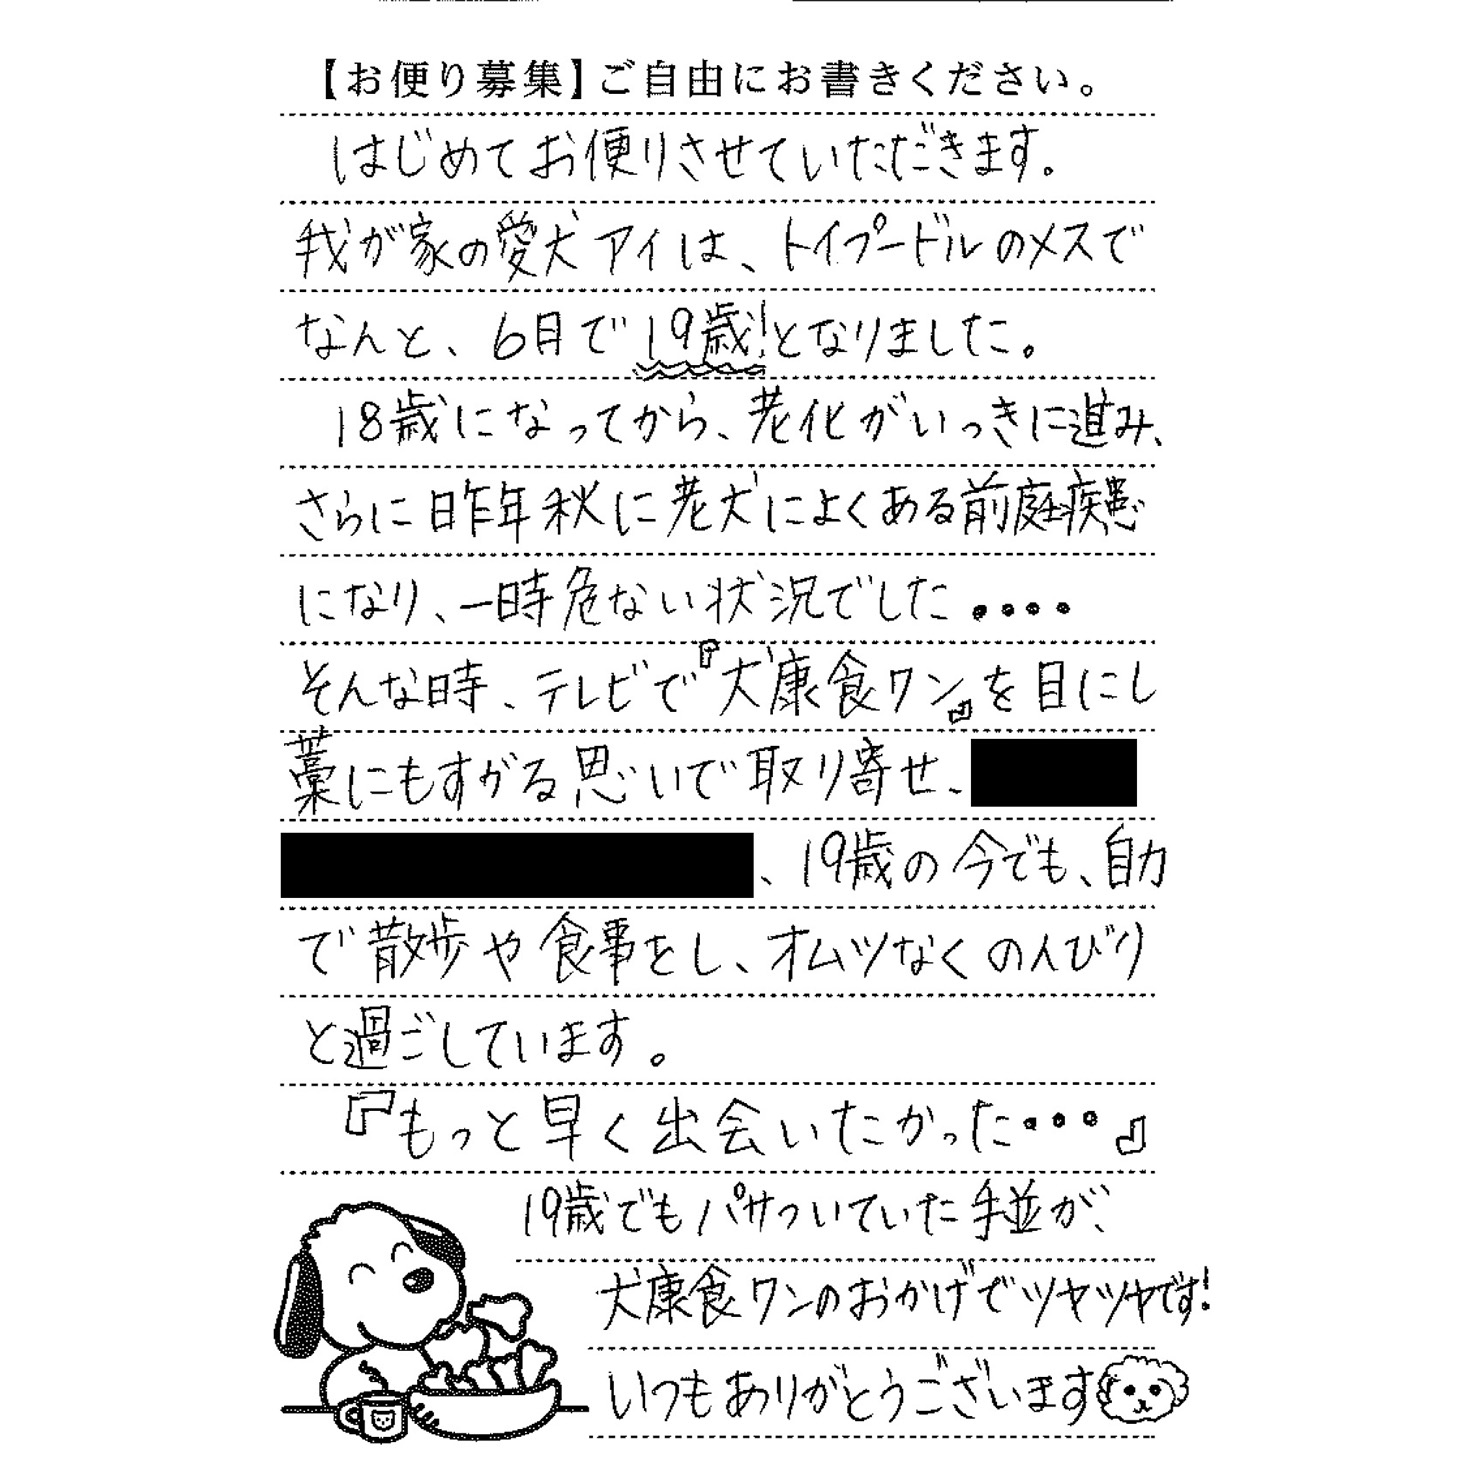 【お便り募集】ご自由にお書きください。
はじめてお便りさせていただきます。
我が家の愛犬アイは、トイプードルのメスで
なんと、6月で19歳!となりました。
18歳になってから、老化がいっきに進み、
さらに昨年秋に老犬によくある前庭疾患
になり、一時危ない状況でした・・・・
そんな時、テレビで『犬康食ワン』を目にし
藁にもすがる思いで取り寄せ、
、19歳の今でも、自力
で散歩や食事をし、オムツなくのんびり
と過ごしています。
『もっと早く出会いたかった・・・』
19歳でもパサついていた手並が、
犬康食ワンのおかげでツヤツヤです!
いつもありがとうございます